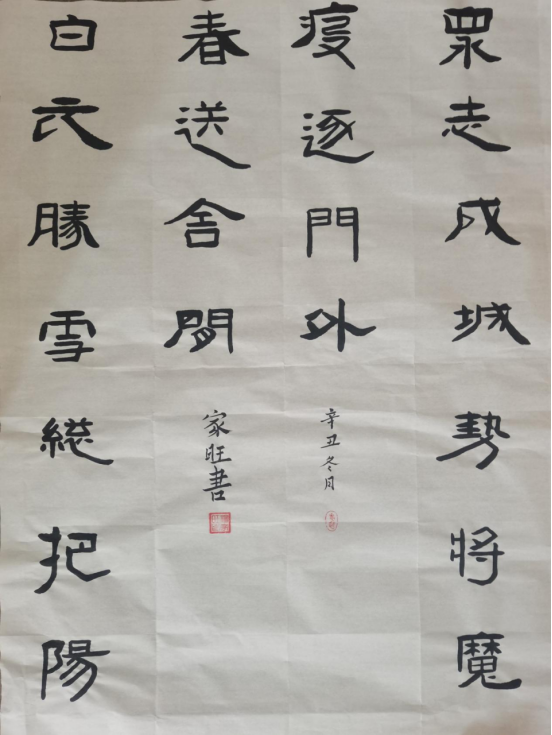 眾志成城勢將魔
疫逐門外
辛丑冬月
白衣勝雪總把陽
春送舍間
家旺書